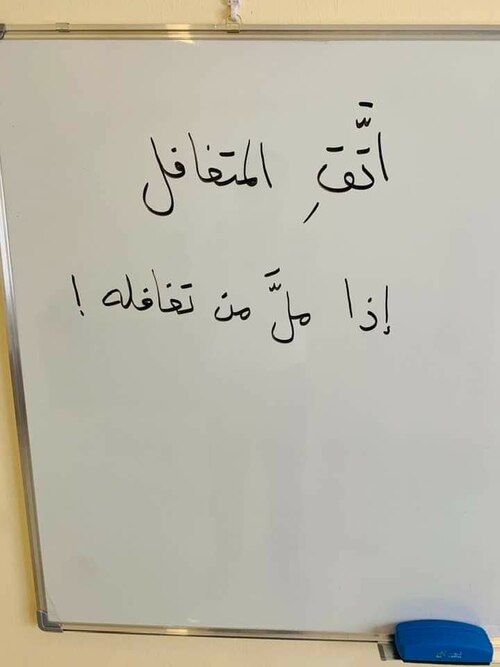 اتَّقِ المتغافل
إذا ملَّ من تغافله !